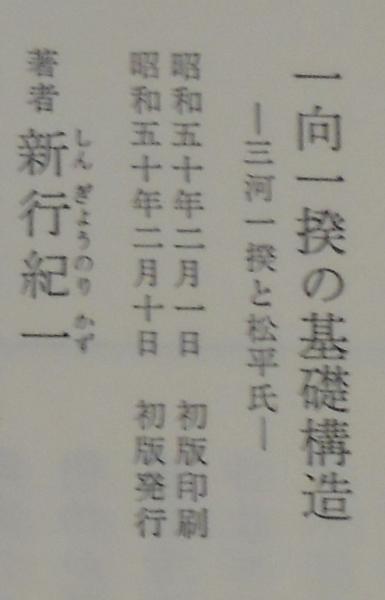 一向一揆の基礎構造
―三河一揆と松平氏―
昭和五十年二月一日 初版印刷
昭和五十年二月十日 初版発行
著者 新行紀一
しんぎょうのりかず